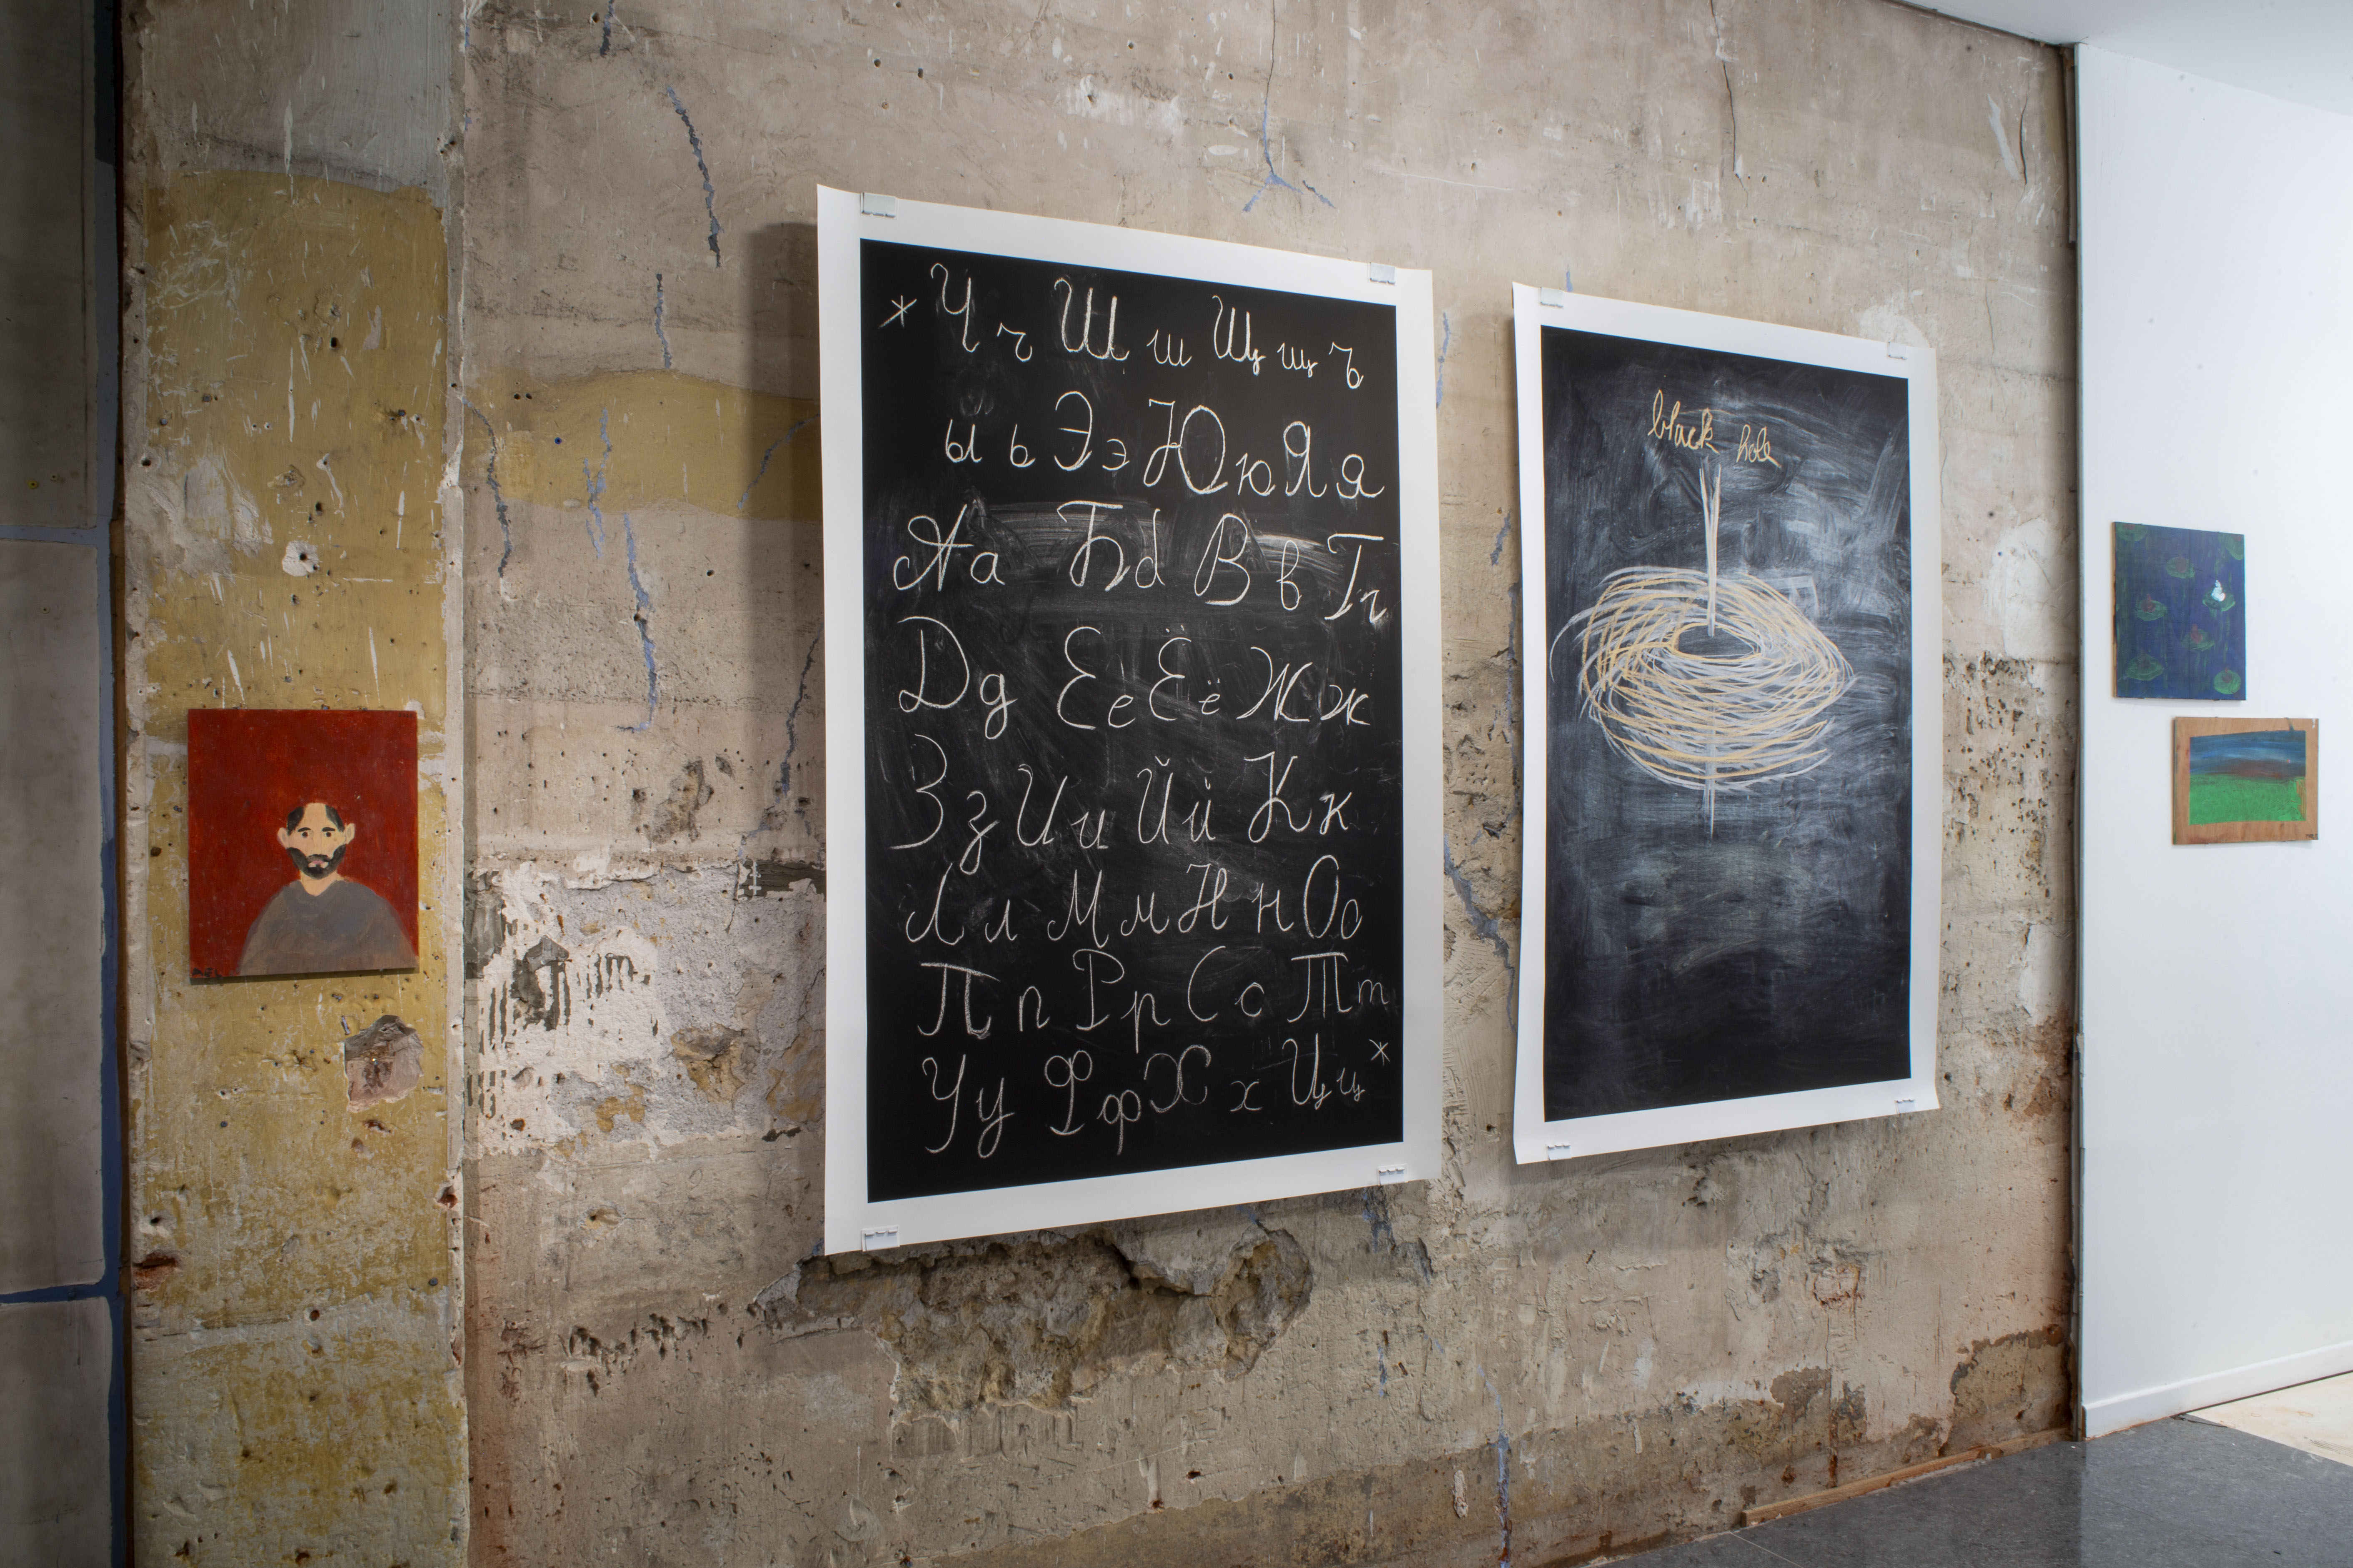 * Ч ч Ш ш Щ щ ъ
ы ь Э э Ю ю Я я
А а Б б В в Г г
Д д Е е Ё ё Ж ж
З з И и Й й К к
Л л М м Н н О о
П п Р р С с Т т
У у Ф ф Х х Ц ц *
black hole